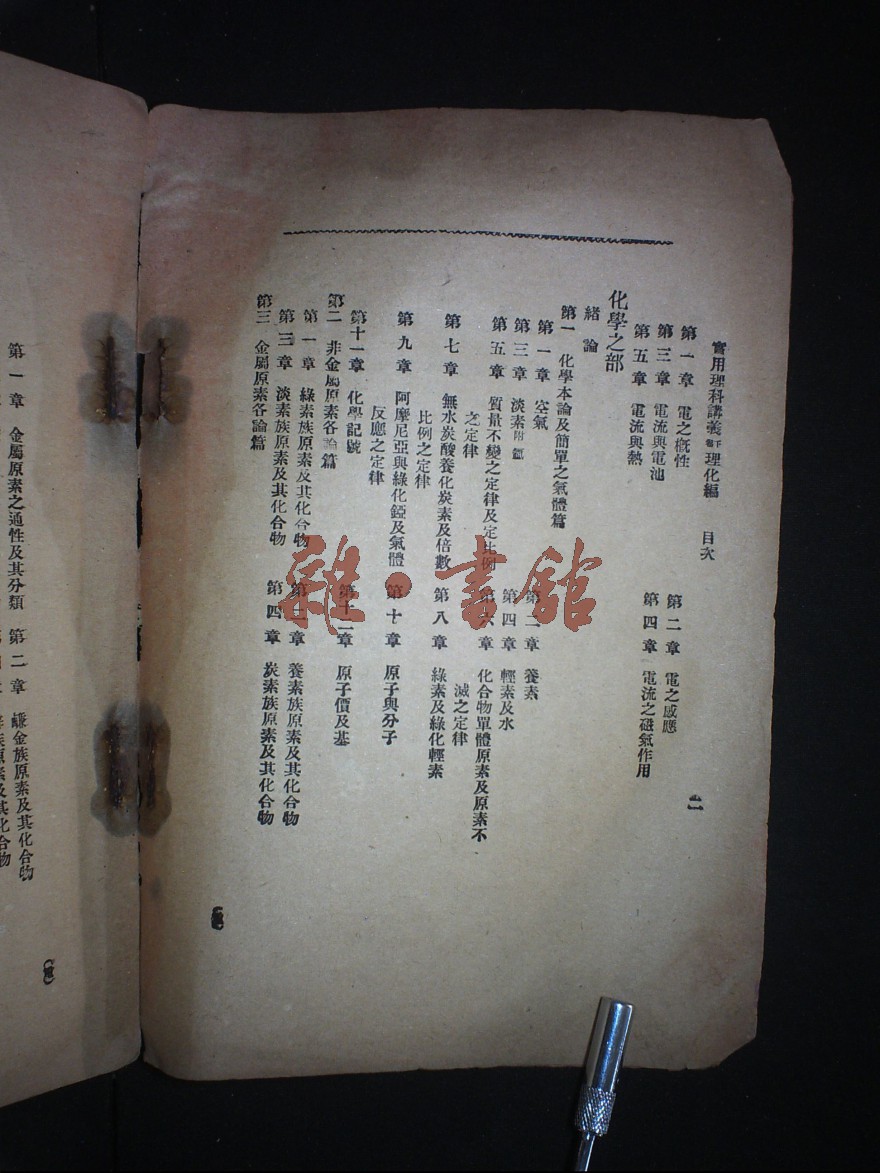 實用理科講義 卷下 理化編 目次 二
第一章 電之概性 第二章 電之感應
第三章 電流與電池 第四章 電流之磁氣作用
第五章 電流與熱
化學之部
緒論
第一 化學本論及簡單之氣體篇
第一章 空氣 第二章 養素
第三章 淡素附氬 第四章 輕素及水
第五章 質量不變之定律及定比例之定律 第六章 化合物單體原素及原素不滅之定律
第七章 無水炭酸養化炭素及倍數比例之定律 第八章 綠素及綠化輕素
第九章 阿摩尼亞與綠化錏及氣體反應之定律 第十章 原子與分子
第十一章 化學記號 第十二章 原子價及基
第二 非金屬原素各論篇
第一章 綠素族原素及其化合物 第二章 養素族原素及其化合物
第三章 淡素族原素及其化合物 第四章 炭素族原素及其化合物
第三 金屬原素各論篇
第一章 金屬原素之通性及其分類 第二章 鏀金族原素及其化合物
族原素及其化合物
雜·書館